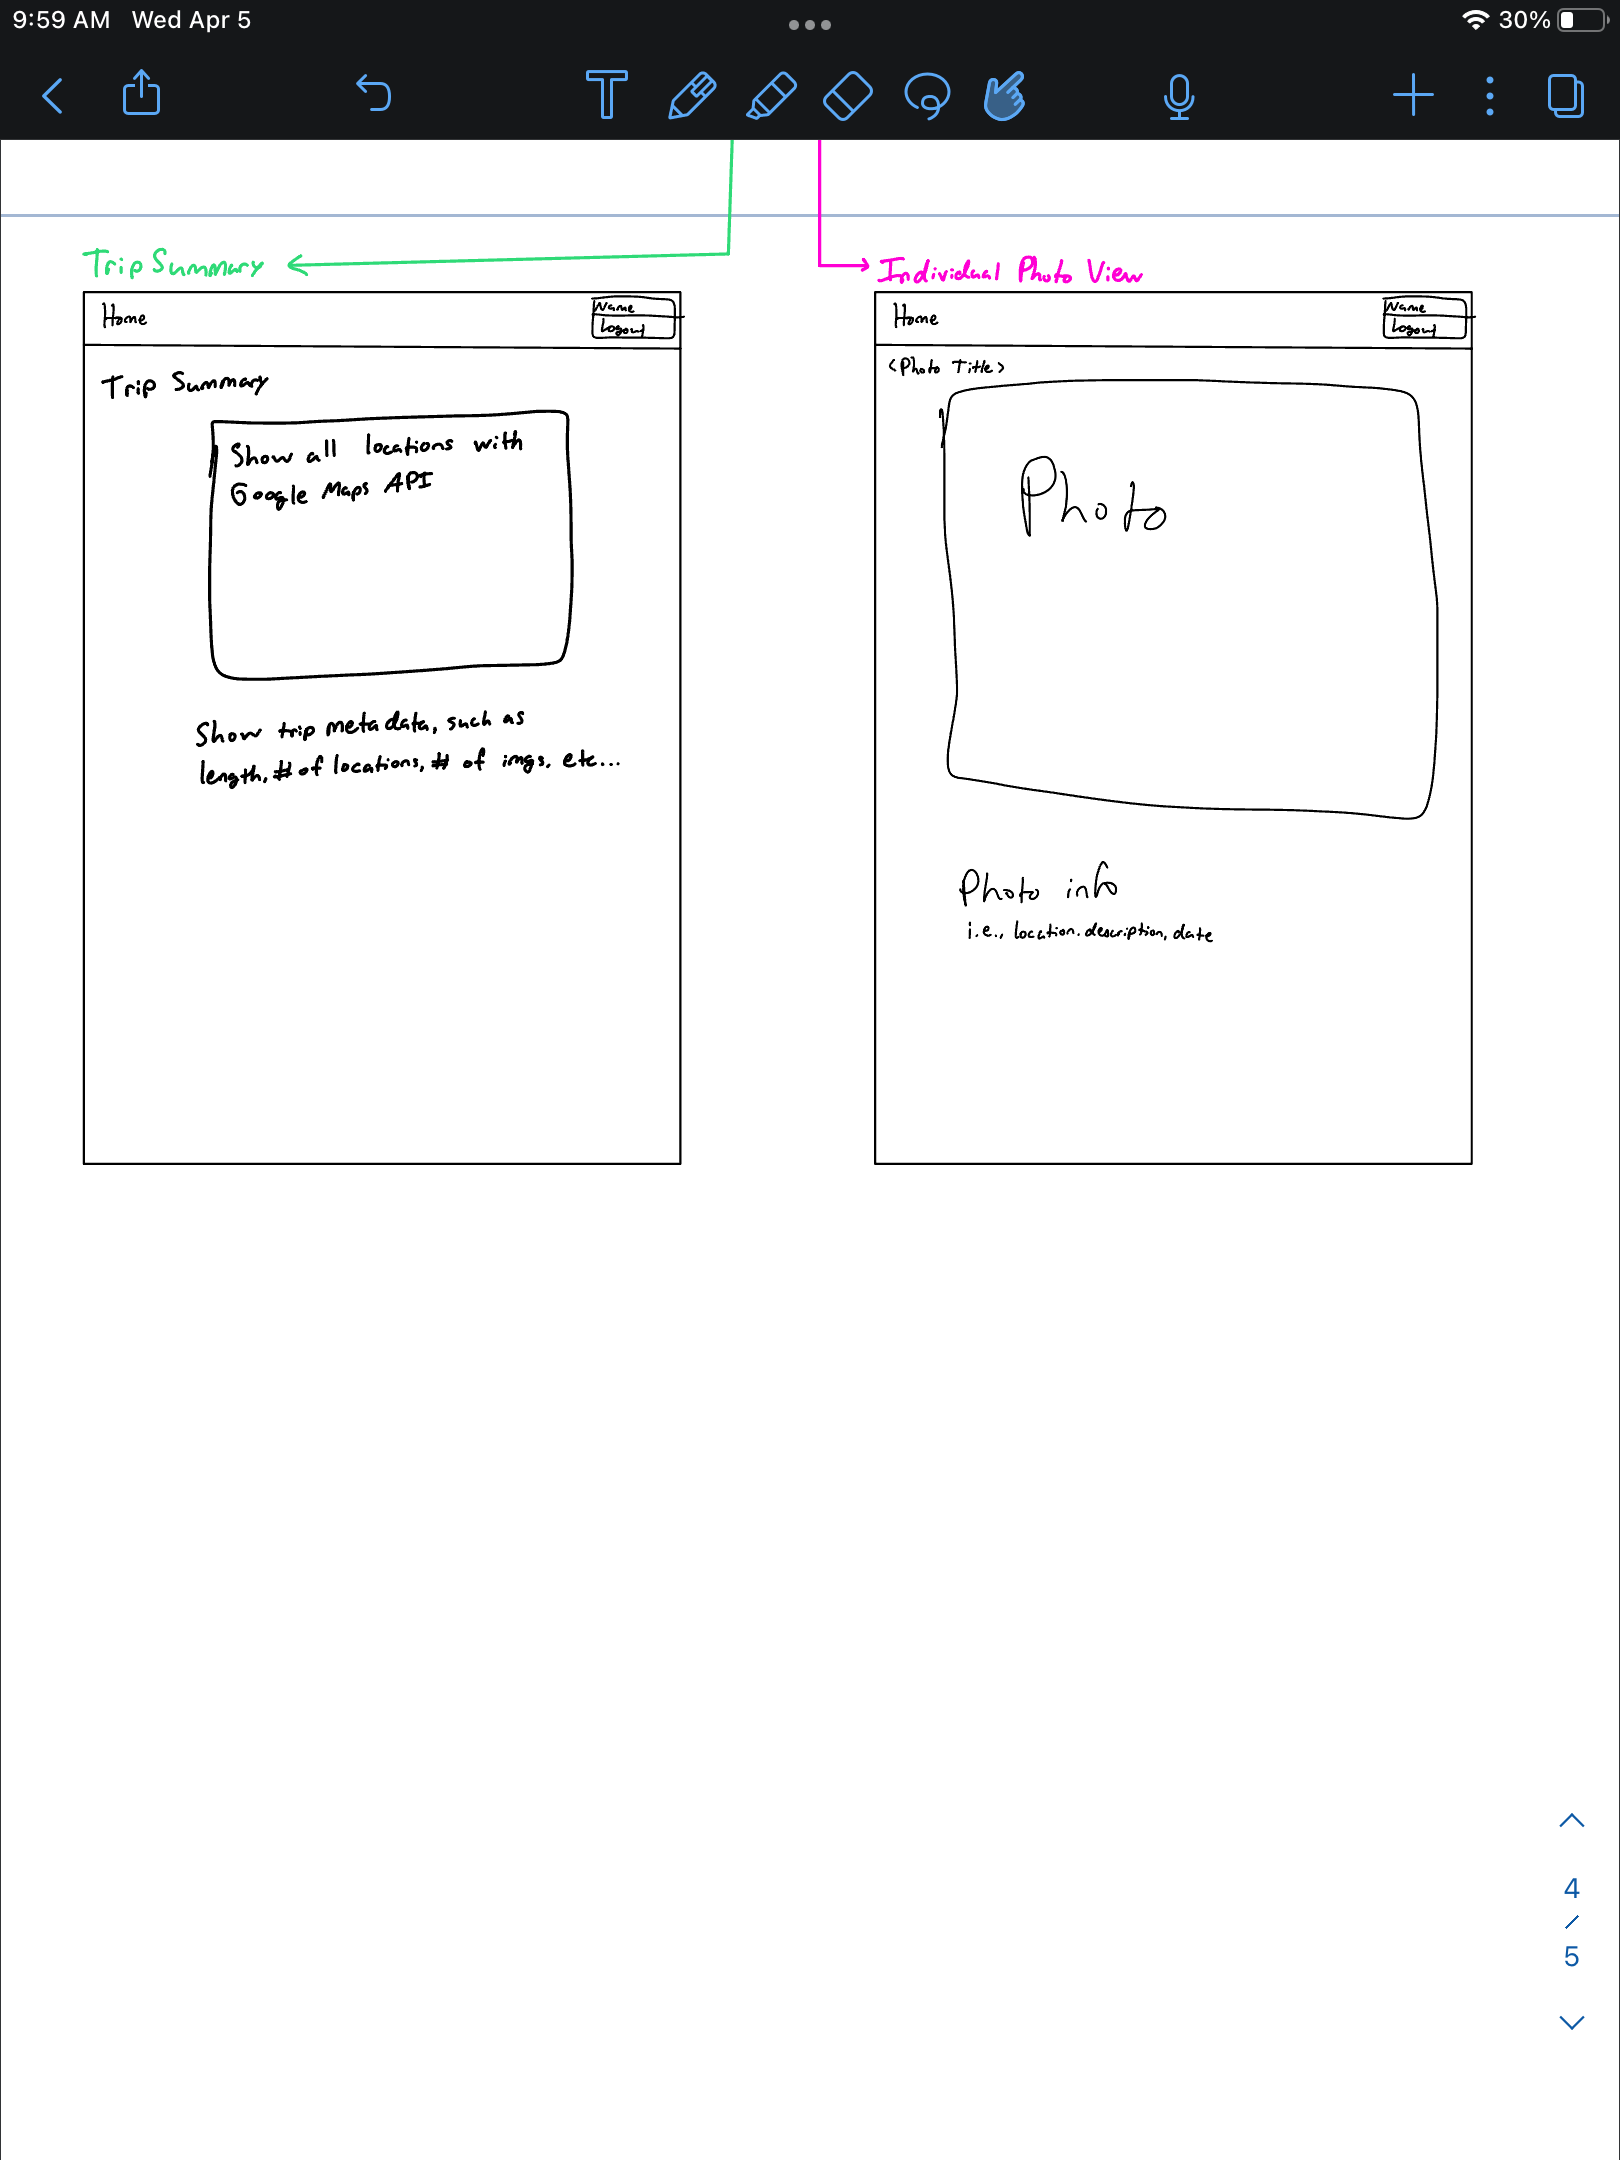 9:59 AM Wed Apr 5
30%
T
Trip Summary
Home
Name
Logout
Trip Summary
Show all locations with
Google Maps API
Show trip metadata, such as
length, # of locations, # of imgs, etc...
Individual Photo View
Home
Name
Logout
<Photo Title>
Photo
Photo info
i.e., location, description, date
4
/
5